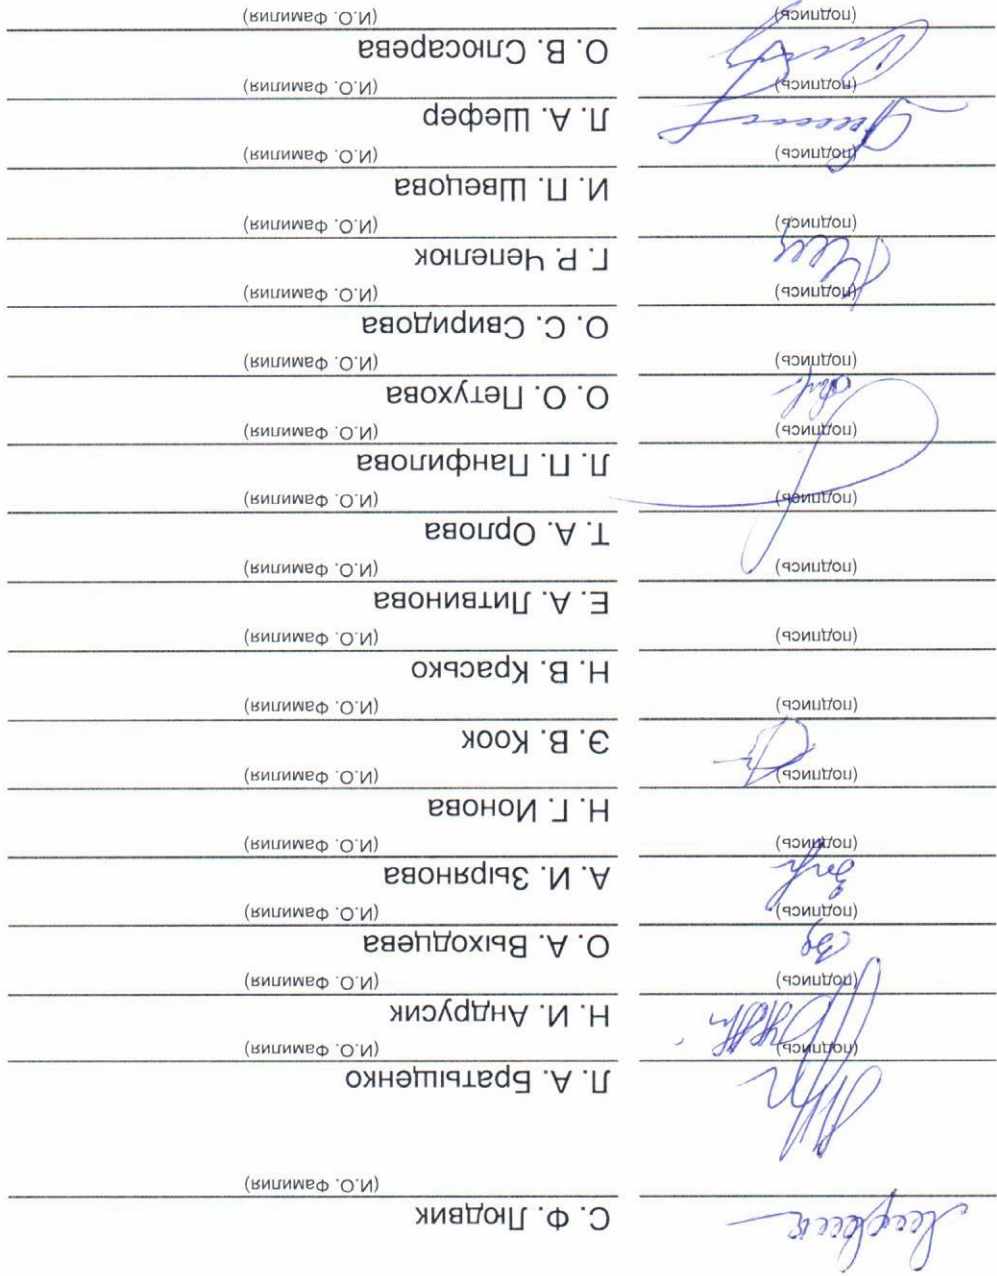 С. Ф. Людвик
(И.О. Фамилия)
Л. А. Братыщенко
(подпись) (И.О. Фамилия)
Н. И. Андрусик
(подпись) (И.О. Фамилия)
О. А. Выходцева
(подпись) (И.О. Фамилия)
А. И. Зырянова
(подпись) (И.О. Фамилия)
Н. Г. Ионова
(подпись) (И.О. Фамилия)
Э. В. Коок
(подпись) (И.О. Фамилия)
Н. В. Красько
(подпись) (И.О. Фамилия)
Е. А. Литвинова
(подпись) (И.О. Фамилия)
Т. А. Орлова
(подпись) (И.О. Фамилия)
Л. П. Панфилова
(подпись) (И.О. Фамилия)
О. О. Петухова
(подпись) (И.О. Фамилия)
О. С. Свиридова
(подпись) (И.О. Фамилия)
Г. Р. Чепелюк
(подпись) (И.О. Фамилия)
И. П. Швецова
(подпись) (И.О. Фамилия)
Л. А. Шефер
(подпись) (И.О. Фамилия)
О. В. Слюсарева
(подпись) (И.О. Фамилия)